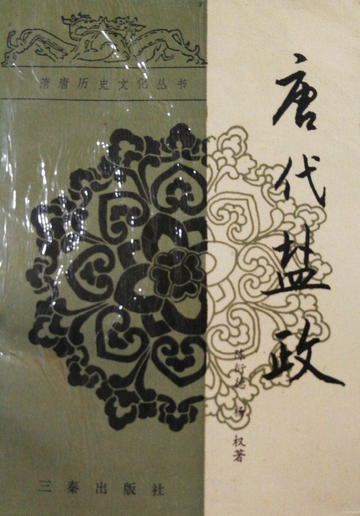 隋唐历史文化丛书
唐代盐政
陈衍德 杨 权著
三秦出版社